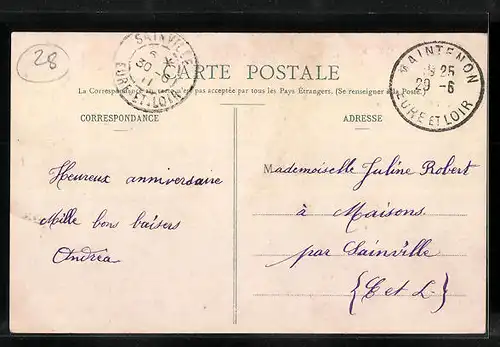 28
SAINVILLE
30 -6
11
EURE-ET-LOIR
CARTE POSTALE
MAINTENON
25
29 -6
EURE ET LOIR
La Correspondance au recto n'est pas acceptée par tous les Pays Étrangers. (Se renseigner à la Poste)
CORRESPONDANCE
ADRESSE
Heureux anniversaire
Mille bons baisers
Andréa
Mademoiselle Juline Robert
à Maisons
par Sainville
(E et L.)